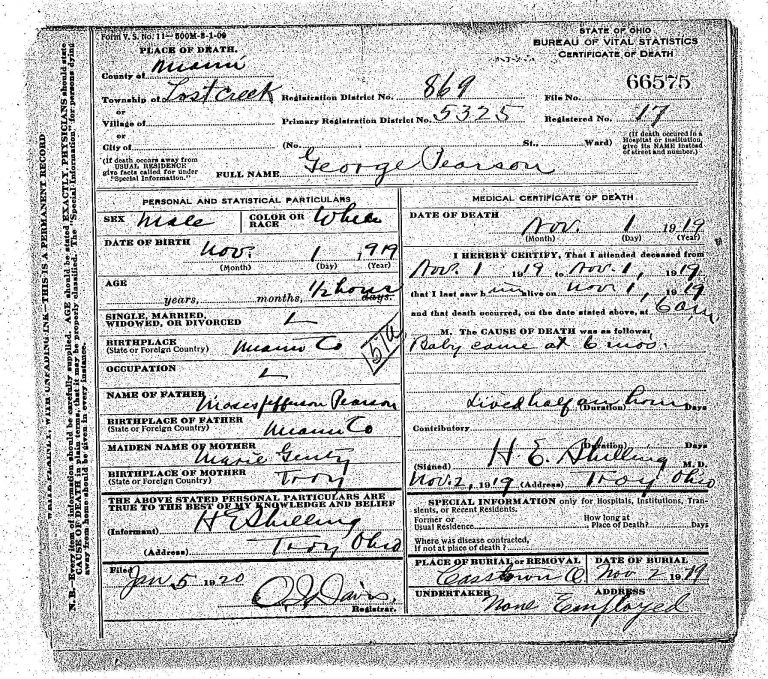 Form V. S. No. 11—500M-8-1-09
STATE OF OHIO
BUREAU OF VITAL STATISTICS
CERTIFICATE OF DEATH
PLACE OF DEATH.
County of Miami
Township of Lost Creek
or
Village of
or
City of
(If death occurs away from
USUAL RESIDENCE
give facts called for under
"Special Information.")
Registration District No. 869
File No. 66575
Primary Registration District No. 5325
Registered No. 17
(No. St., Ward)
(If death occured in a
Hospital or institution,
give its NAME instead
of street and number.)
FULL NAME George Pearson
PERSONAL AND STATISTICAL PARTICULARS
SEX Male
COLOR OR RACE White
DATE OF BIRTH Nov. 1 1919
(Month) (Day) (Year)
AGE
years, months, 1/2 hours days.
SINGLE, MARRIED,
WIDOWED, OR DIVORCED
BIRTHPLACE
(State or Foreign Country) Miami Co
OCCUPATION
NAME OF FATHER Moses Jefferson Pearson
BIRTHPLACE OF FATHER
(State or Foreign Country) Miami Co
MAIDEN NAME OF MOTHER
Marie
BIRTHPLACE OF MOTHER
(State or Foreign Country) Troy
THE ABOVE STATED PERSONAL PARTICULARS ARE
TRUE TO THE BEST OF MY KNOWLEDGE AND BELIEF
(Informant) H E Shilling
(Address) Troy Ohio
Filed Jan 5 1920
Davis.
Registrar.
MEDICAL CERTIFICATE OF DEATH
DATE OF DEATH
Nov. 1 1919
(Month) (Day) (Year)
I HEREBY CERTIFY, That I attended deceased from
Nov. 1 1919 to Nov. 1, 1919,
that I last saw him alive on Nov 1, 1919
and that death occurred, on the date stated above, at 6 am
M. The CAUSE OF DEATH was as follows,
Baby came at 6 mos.
Lived half an hour (Duration) Days
Contributory
(Duration) Days
(Signed) H. E. Shilling M. D.
Nov. 2, 1919 (Address) Troy Ohio
SPECIAL INFORMATION only for Hospitals, Institutions, Tran-
sients, or Recent Residents.
Former or
Usual Residence
How long at
Place of Death? Days
Where was disease contracted,
If not at place of death?
PLACE OF BURIAL OR REMOVAL
Casstown O.
DATE OF BURIAL
Nov 2 1919
UNDERTAKER
ADDRESS
None Employed
WRITE PLAINLY, WITH UNFADING INK—THIS IS A PERMANENT RECORD
N. B.—Every item of information should be carefully supplied. AGE should be stated EXACTLY. PHYSICIANS should state
CAUSE OF DEATH in plain terms, that it may be properly classified. The "Special Information" for persons dying
away from home should be given in every instance.